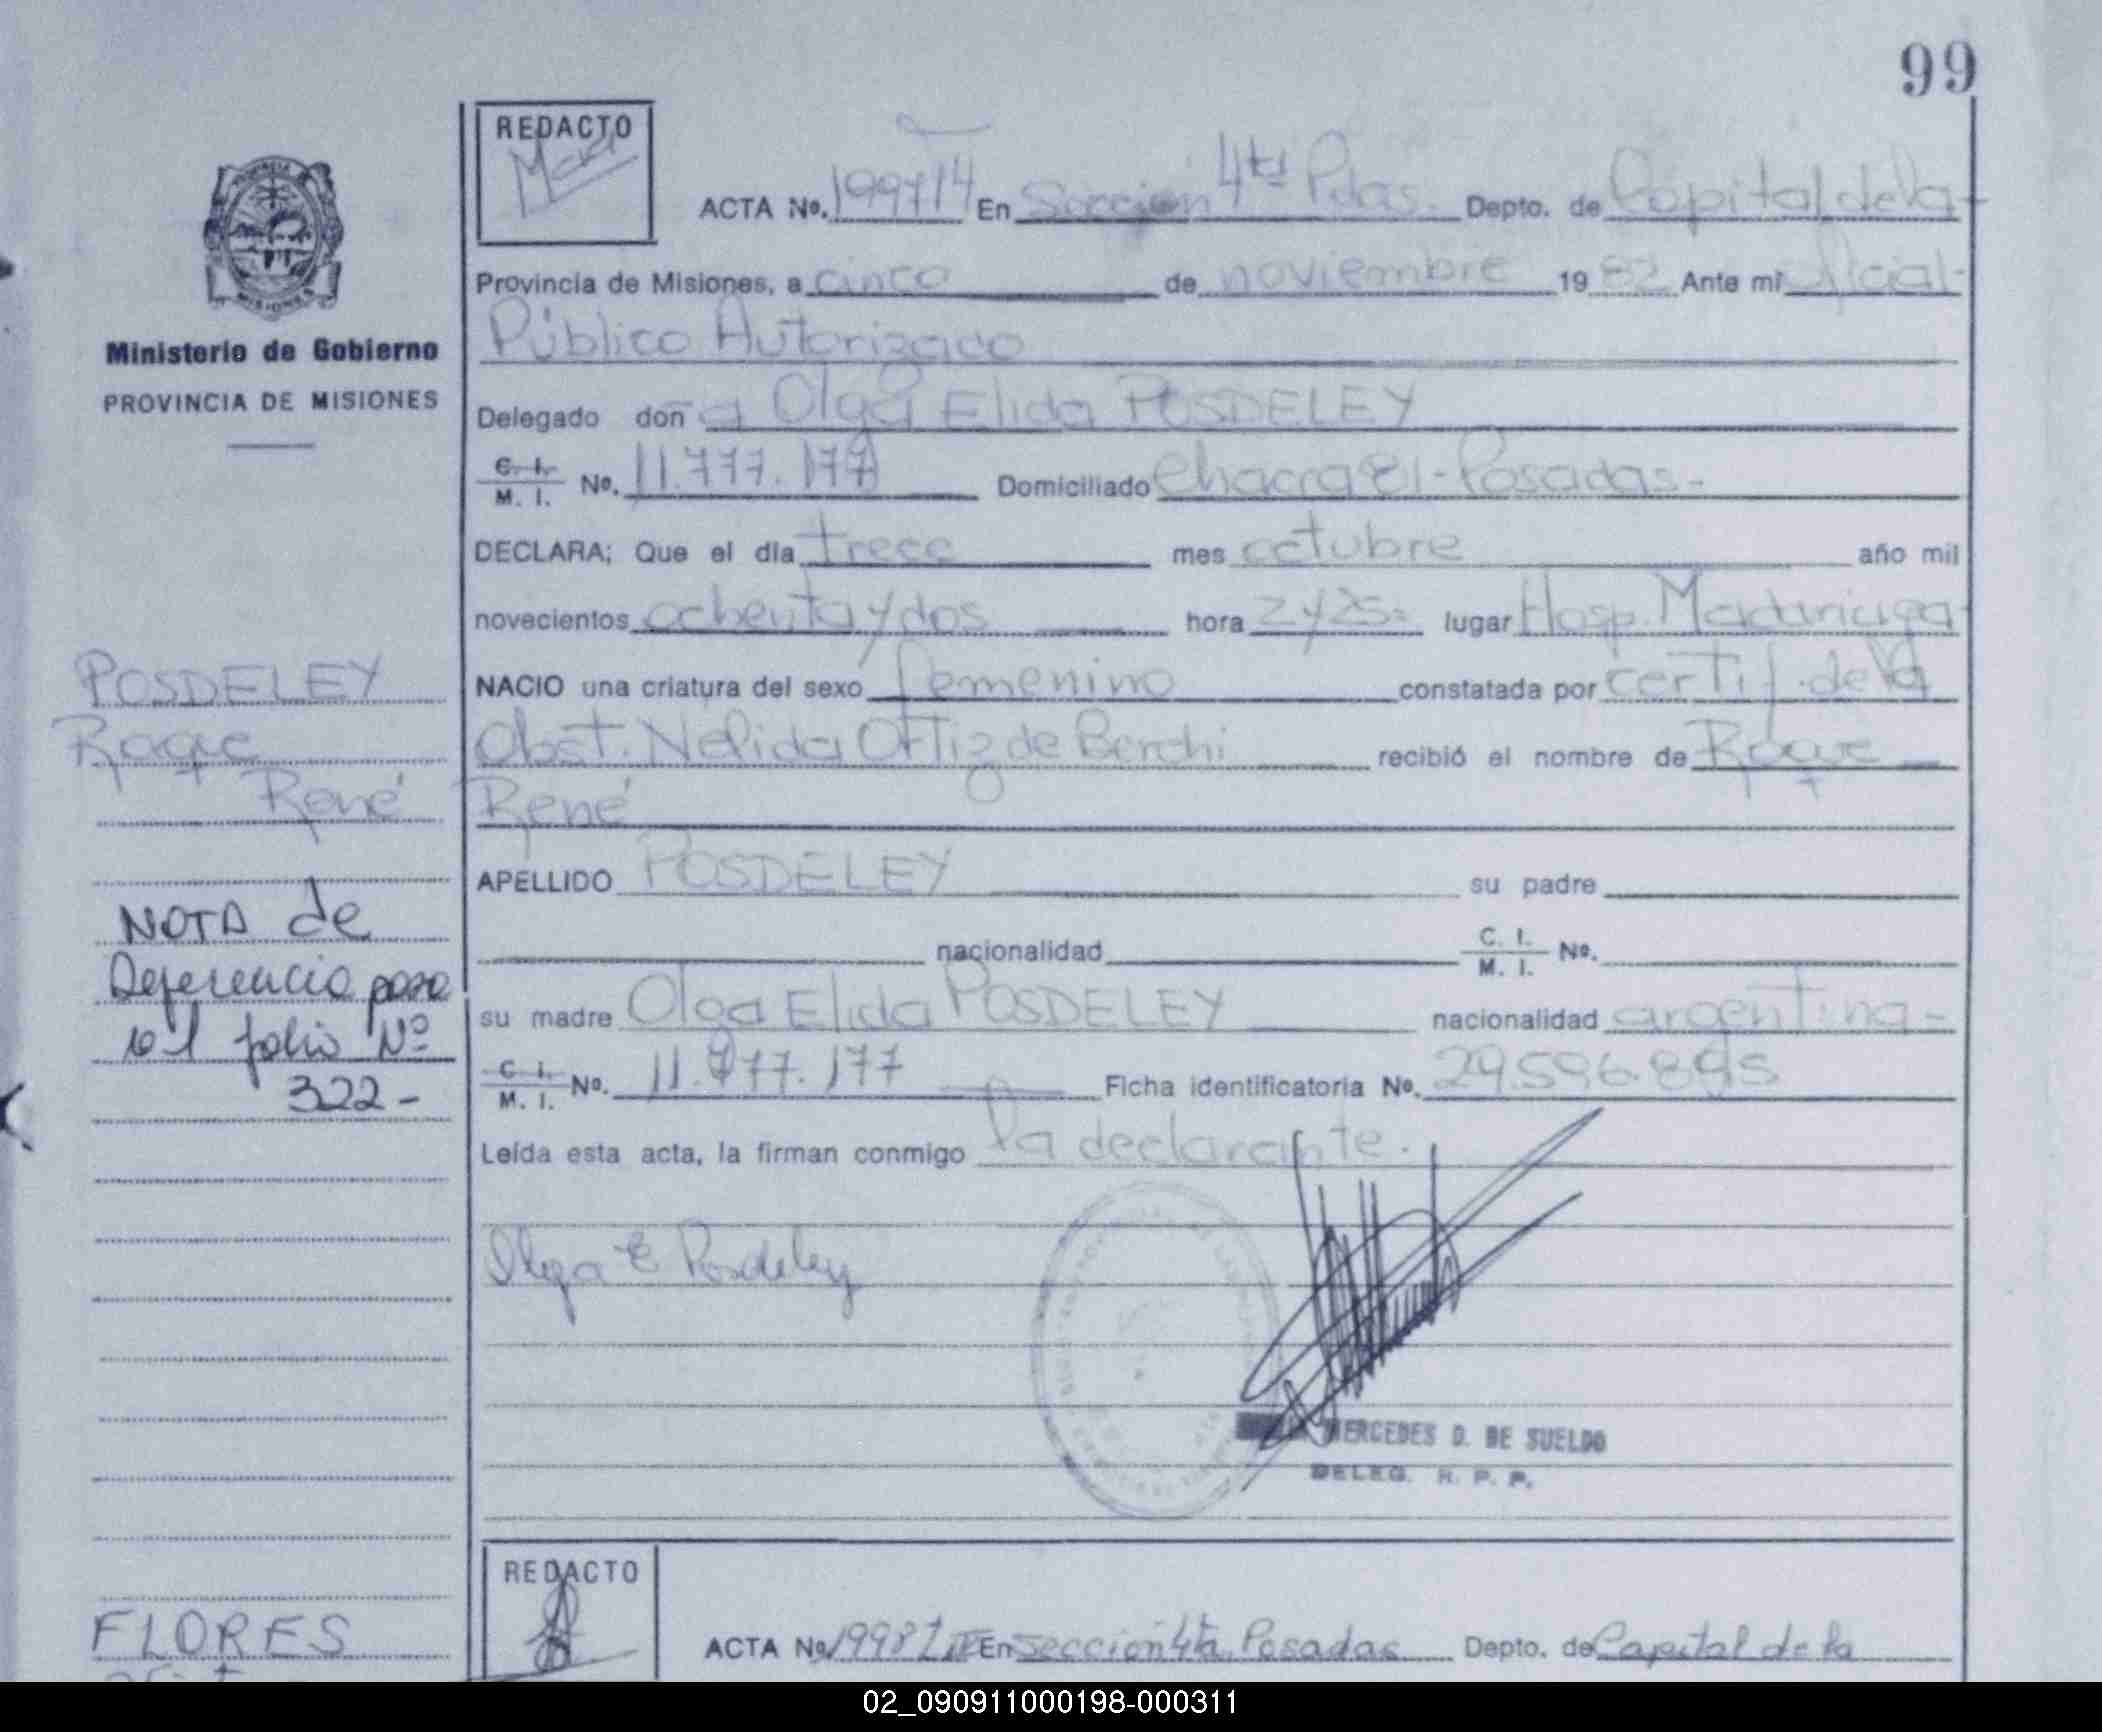 99
REDACTO
ACTA Nº. 199714 En Sección 4ta Pdas. Depto. de Capital de la
Provincia de Misiones, a cinco de noviembre 19 82 Ante mi oficial
Ministerio de Gobierno
PROVINCIA DE MISIONES
Público Autorizado
Delegado doña Olga Elida POSDELEY
C. I. M. I. Nº. 11.777.177 Domiciliado Chacra 81 - Posadas -
DECLARA; Que el dia trece mes octubre año mil
novecientos ochenta y dos hora 2 y 25 lugar Hosp. Madariaga
NACIO una criatura del sexo femenino constatada por certif. de la
Obst. Nelida Ortiz de Berchi recibió el nombre de Roque
René
APELLIDO POSDELEY su padre
nacionalidad C. I. M. I. Nº.
su madre Olga Elida POSDELEY nacionalidad argentina -
C. I. M. I. Nº. 11.777.177 Ficha identificatoria Nº. 29.596.895
Leída esta acta, la firman conmigo la declarante.
Olga E Posdeley
MERCEDES D. DE SUELDO
DELEG. R. P. P.
POSDELEY
Roque
René
NOTA de
Referencia pasa
al folio Nº
322 -
REDACTO
ACTA Nº En sección 4ta. Posadas Depto. de Capital de la
FLORES
02_090911000198-000311